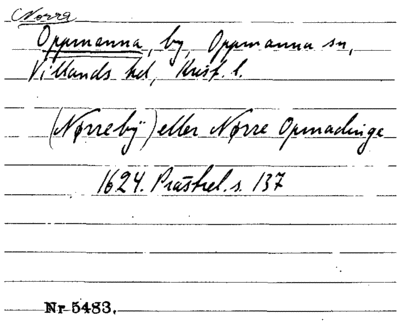 Norra
Oppmanna, by, Oppmanna sn,
Villands hd, Krist. l.
(Nørrebÿ) eller Nørre Opmadinge
1624. Prästrel. s. 137
Nr 5483.